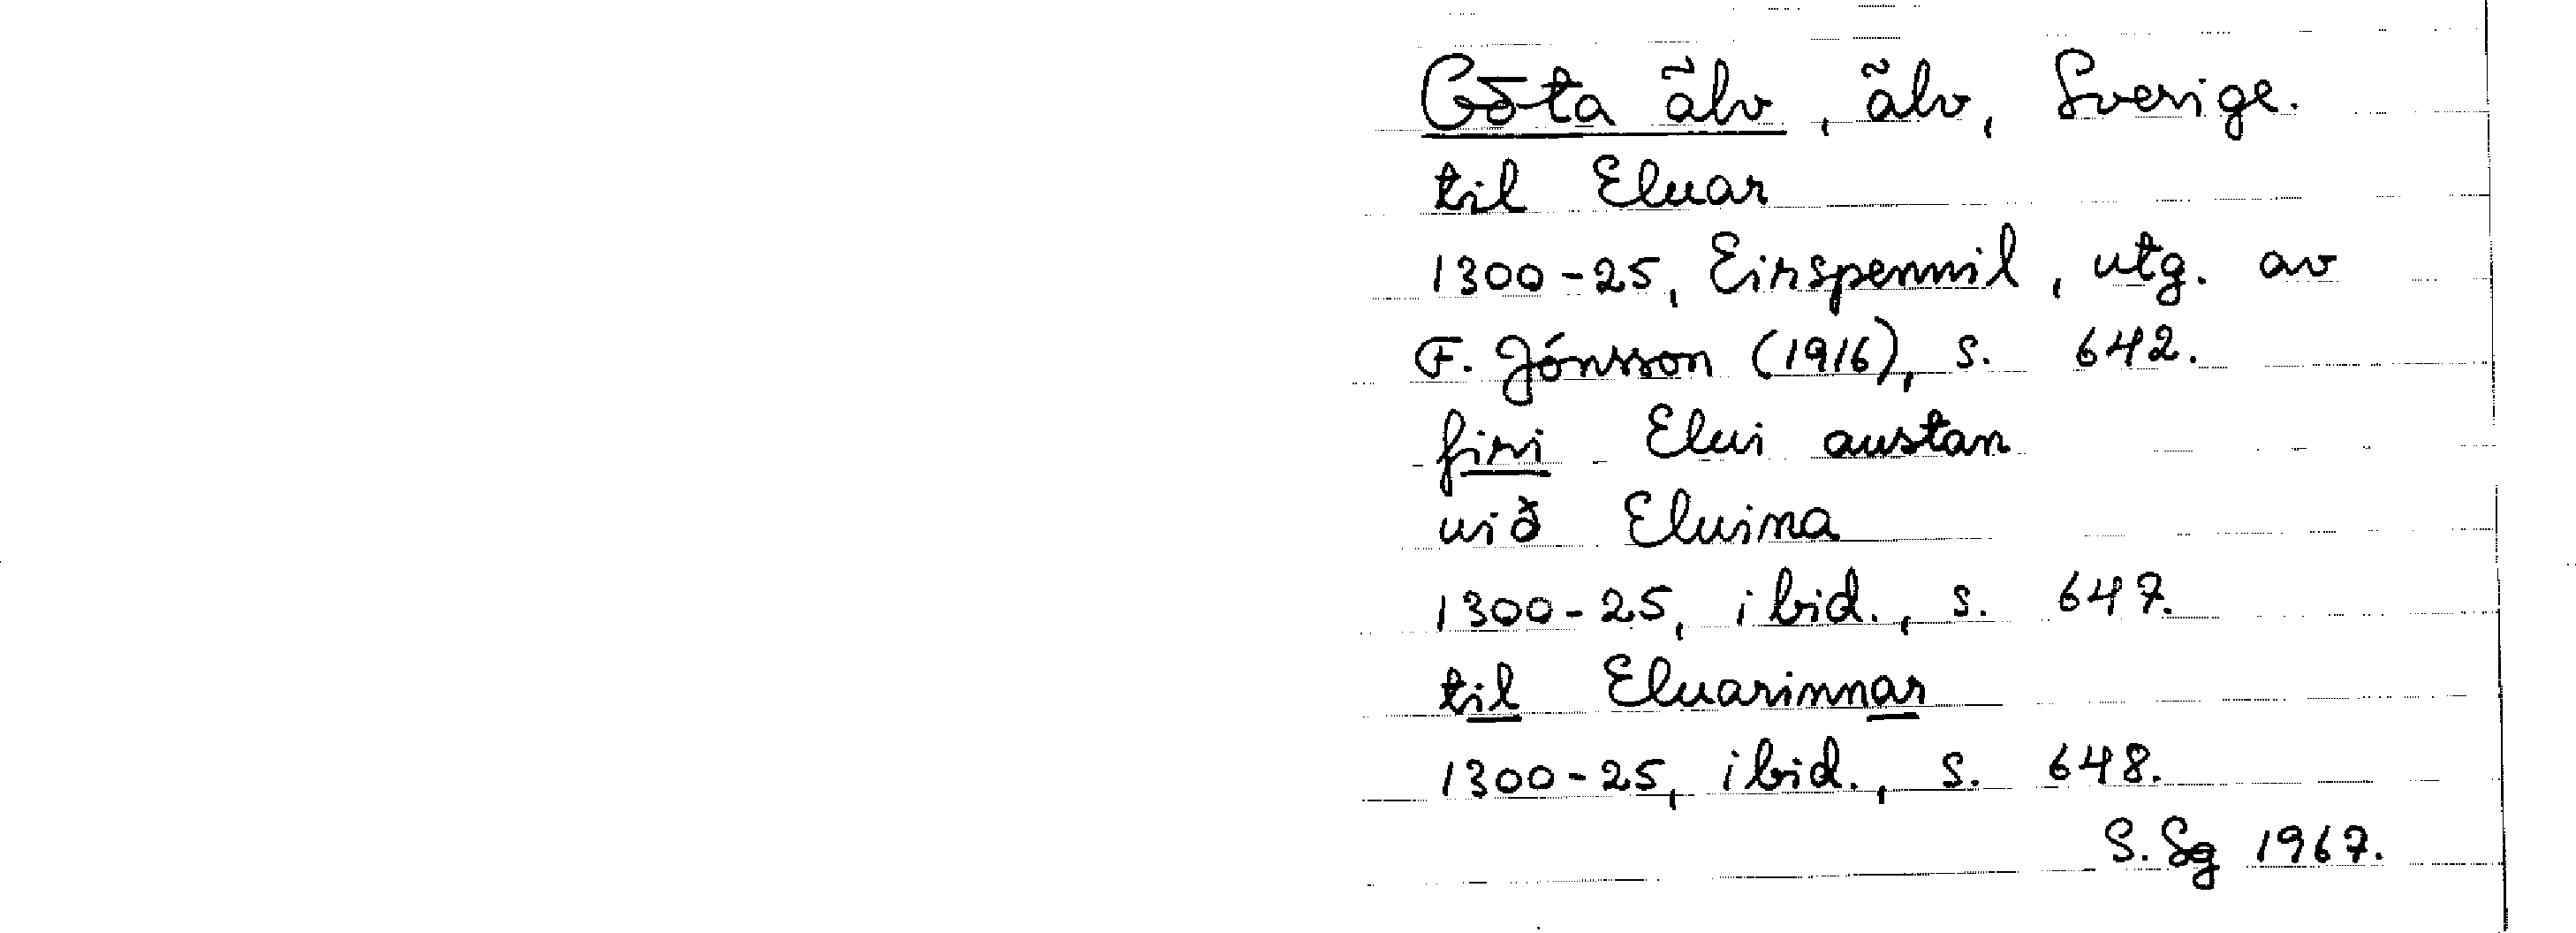 Göta älv, älv, Sverige.
til Eluar
1300-25, Eirspennil, utg. av
F. Jónsson (1916), s. 642.
firi Elui austan
uið Eluina
1300-25, ibid., s. 647.
til Eluarinnar
1300-25, ibid., s. 648.
S. Sg 1967.